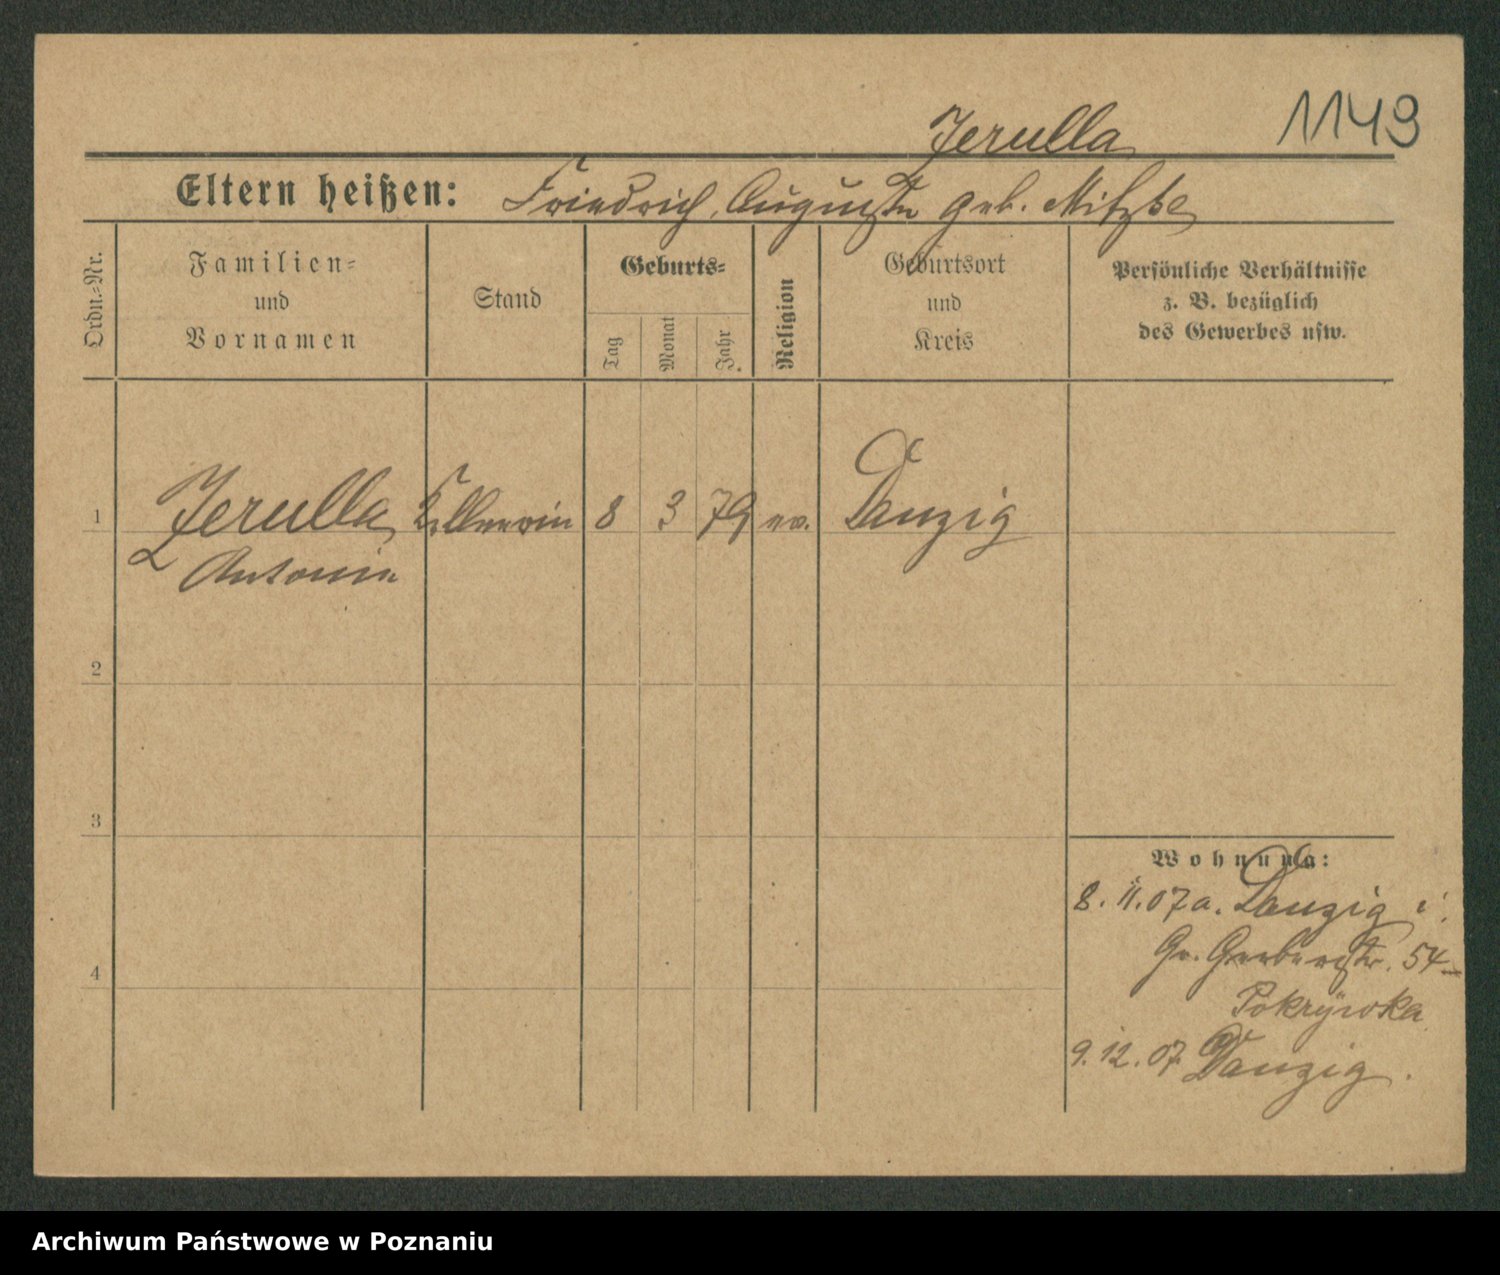 Jerulla 1149
Eltern heißen: Friedrich, Auguste geb.
Ordn.-Nr.
Familien-
und
Vornamen
Stand
Geburts-
Tag
Monat
Jahr
Religion
Geburtsort
und
Kreis
Persönliche Verhältnisse
z. B. bezüglich
des Gewerbes usw.
1 Jerulla Kellnerin 8 3 79 ev. Danzig
Antonie
2
3
Wohnung:
8. 11. 07 a. Danzig i.
Gr. Gerberstr. 54
4
Pokrywka
9. 12. 07 Danzig.
Archiwum Państwowe w Poznaniu